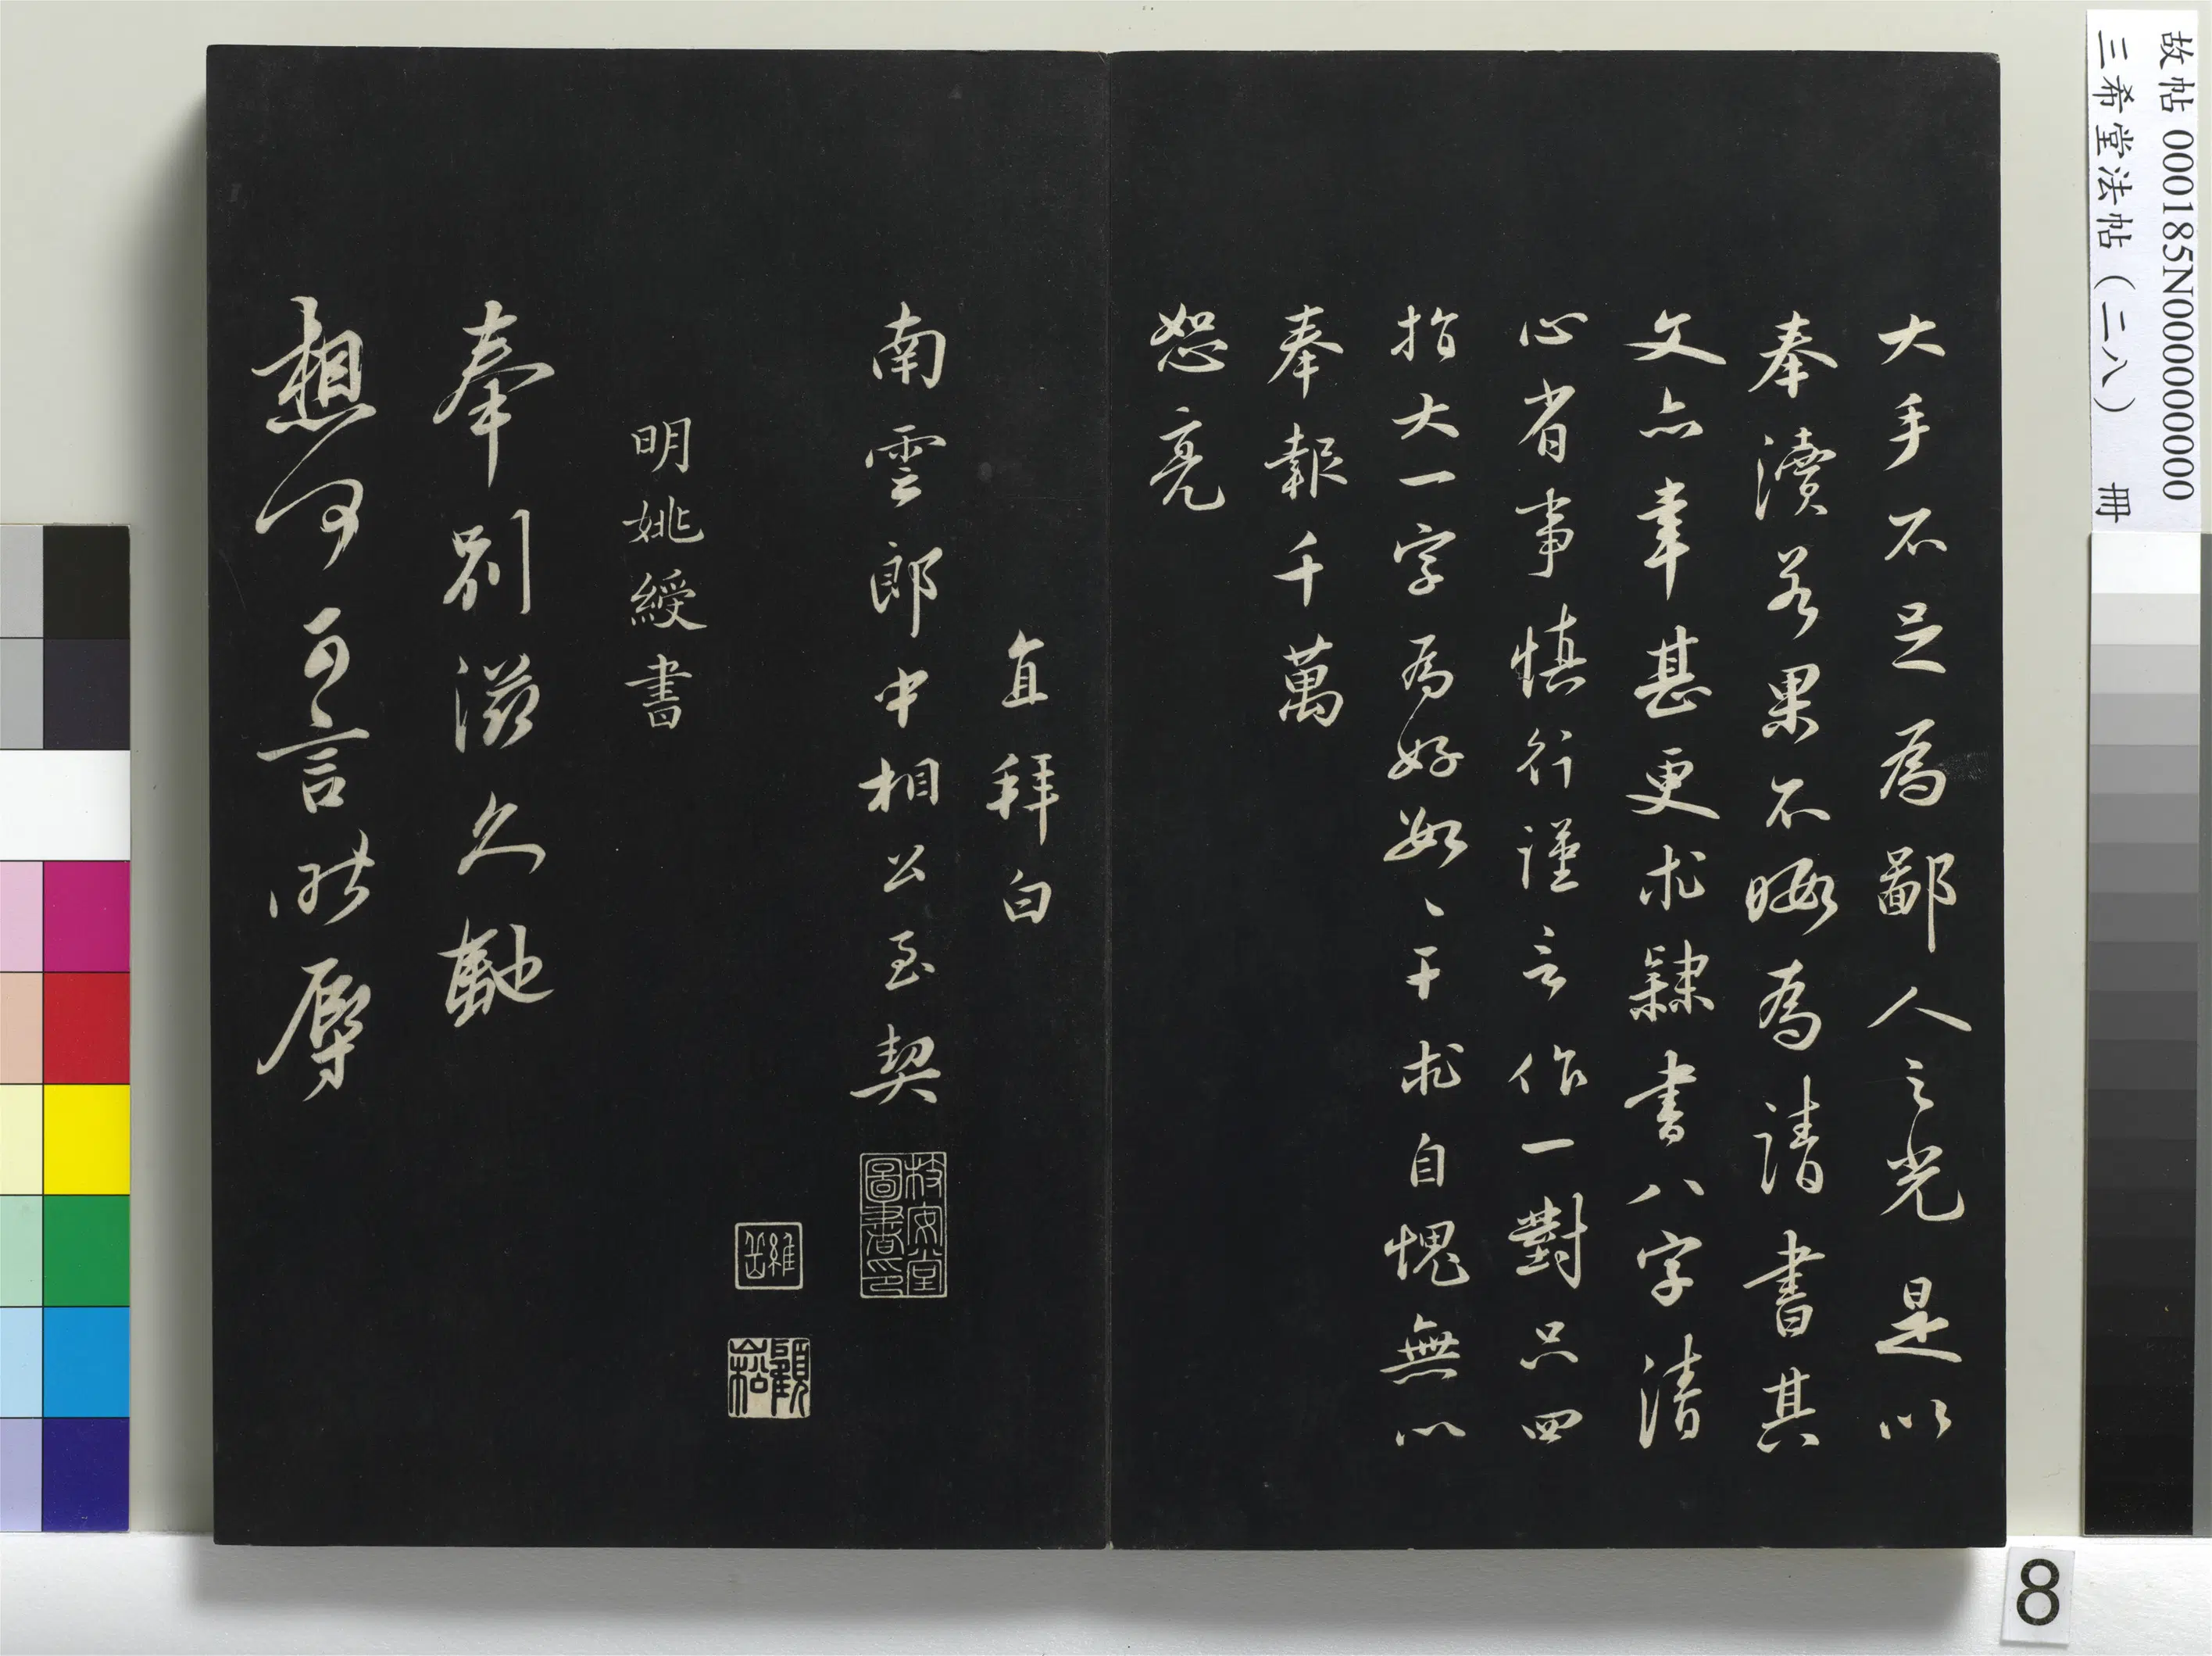 故帖 000185N000000000
三希堂法帖(二八) 冊
大手不足為鄙人之光是以
奉瀆若果不暇為請書其
文亦幸甚更求隸書八字清
心省事慎行謹言作一對只四
指大一字為好如〻干求自愧無以
奉報千萬
恕亮
直拜白
南雲郎中相公至契
明姚綬書
奉別滋久馳
想何可言昨辱
8